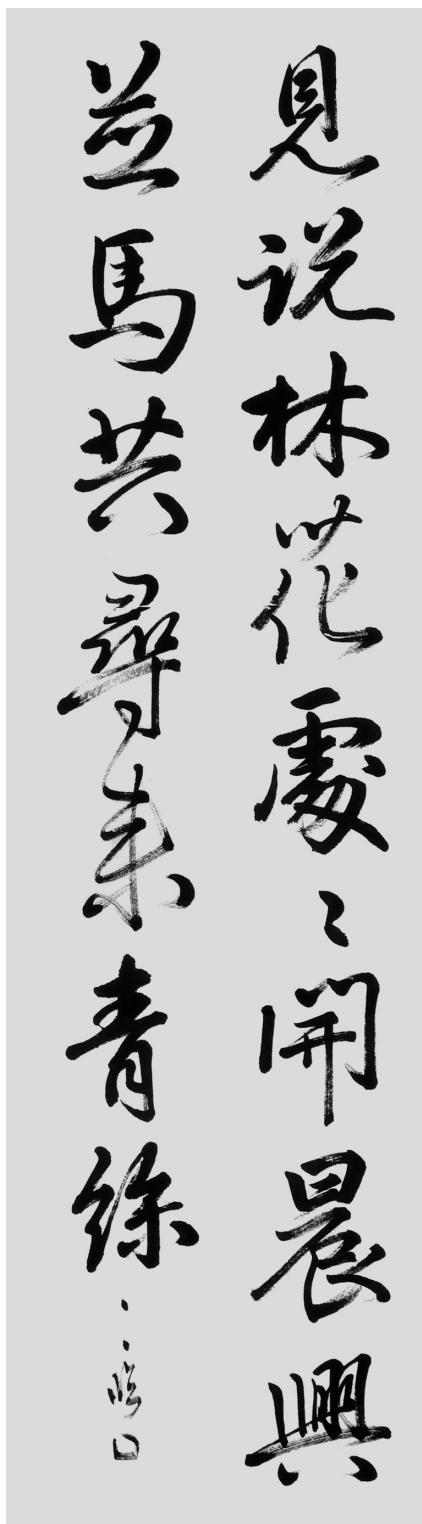 見说林花處々開晨興
並馬共尋来青